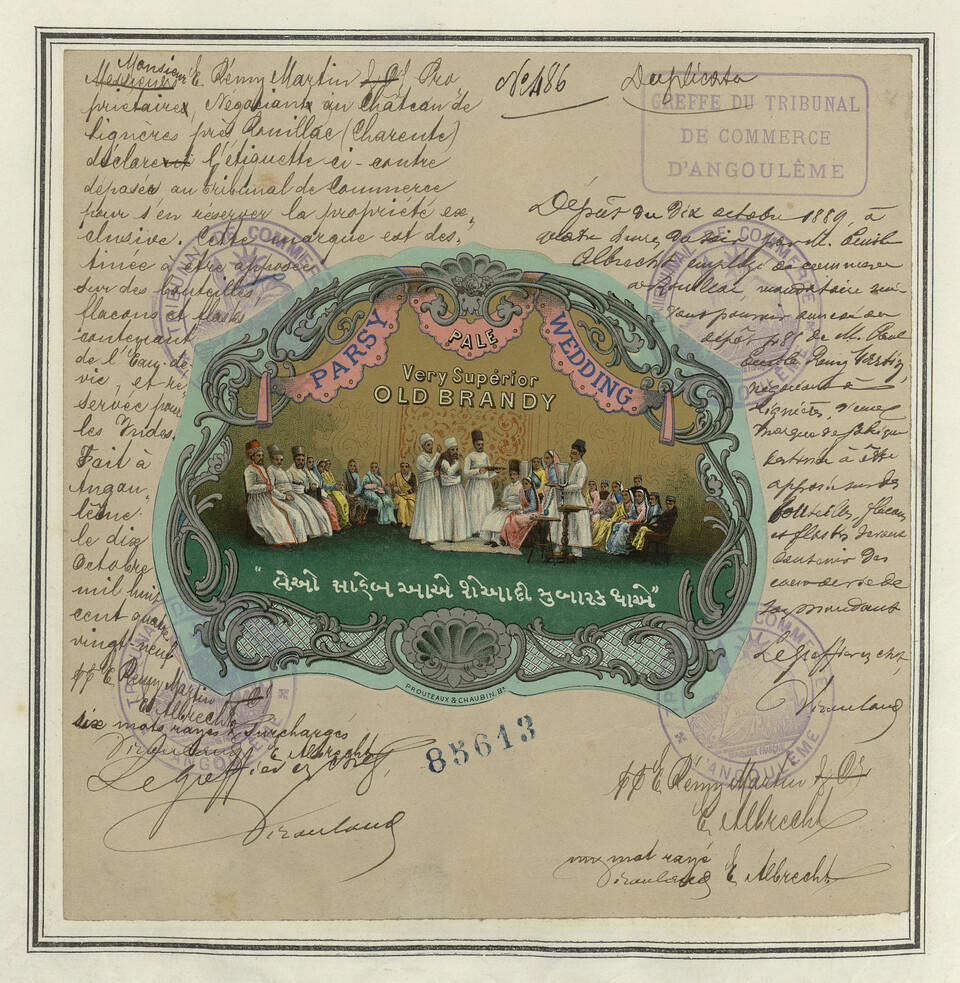 Monsieur E. Rémy Martin & Cie Pro
priétaires, Négociants au Château de
Lignères près Rouillac (Charente)
déclarent l'étiquette ci-contre
déposée au tribunal de Commerce
pour s'en réserver la propriété ex-
clusive. Cette marque est des-
tinée à être apposée
sur des bouteilles,
flacons et flasks
contenant
de l'Eau-de-
vie, et ré-
servée pour
les Indes.
Fait à
Angou-
lême
le dix
Octobre
mil huit
cent quatre
vingt-neuf
pp E. Rémy Martin & Cie
E. Albrecht
six mots rayés & surchargés
E. Albrecht
Le Greffier
No 486
Duplicata
GREFFE DU TRIBUNAL
DE COMMERCE
D'ANGOULÊME
Dépôt du dix octobre 1889, à
par M. Emile
Albrecht employé de commerce
à Rouillac, mandataire
dépôt de M. Paul
Emile Rémy Martin,
négociant à
Lignères, d'une
marque de fabrique
destinée à être
apposée sur des
bouteilles, flacons
et flasks devant
contenir des
eaux de vie de
Le Greffier
pp E. Rémy Martin & Cie
E. Albrecht
un mot rayé
E. Albrecht
PARSY
PALE
WEDDING
Very Supérior
OLD BRANDY
"લેઓ સાહેબ આએ શેઆદી મુબારક થાએ"
PROUTEAUX & CHAUBIN. Bx
85613
TRIBUNAL DE COMMERCE
D'ANGOULÊME